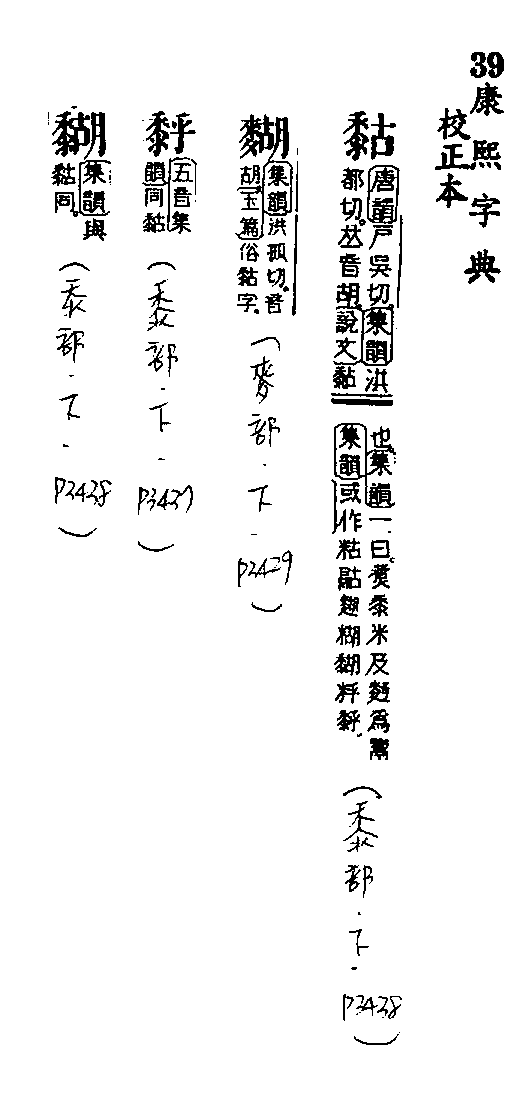 39康熙字典
校正本
䵒
唐韻戸吳切。集韻洪
都切。𠀤音胡。說文黏
也。集韻一曰。煑黍米及麪爲鬻
集韻或作粘糊
(黍部.下.P3438)
集韻洪孤切。音
胡。玉篇俗䵒字。
(麥部.下.P3429)
五音集
韻同䵒
(黍部.下.P3437)
集韻與
䵒同。
(黍部.下.P3438)